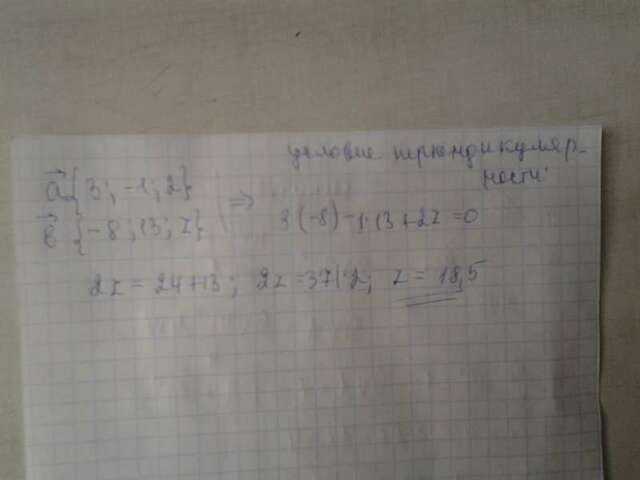 условие перпендикуляр-
ности:
a⃗ {3; -1; 2}
в⃗ {-8; 13; z} ⇒ 3(-8) - 1·13 + 2z = 0
2z = 24+13; 2z = 37|:2; z = 18,5